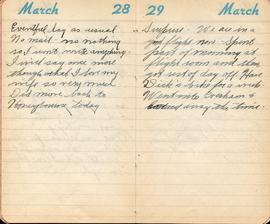 March 28
Eventful day as usual
No mail - no nothing
so I won't write anything.
I will say once more
though what I love my
wife so very much
Did move back to
Honeybourne today
29 March
- We are in a
flight now - Spent
part of morning at
flight room and then
got rest of day off. Have
Dick's bike for a week
Went into Evesham &
away the time.